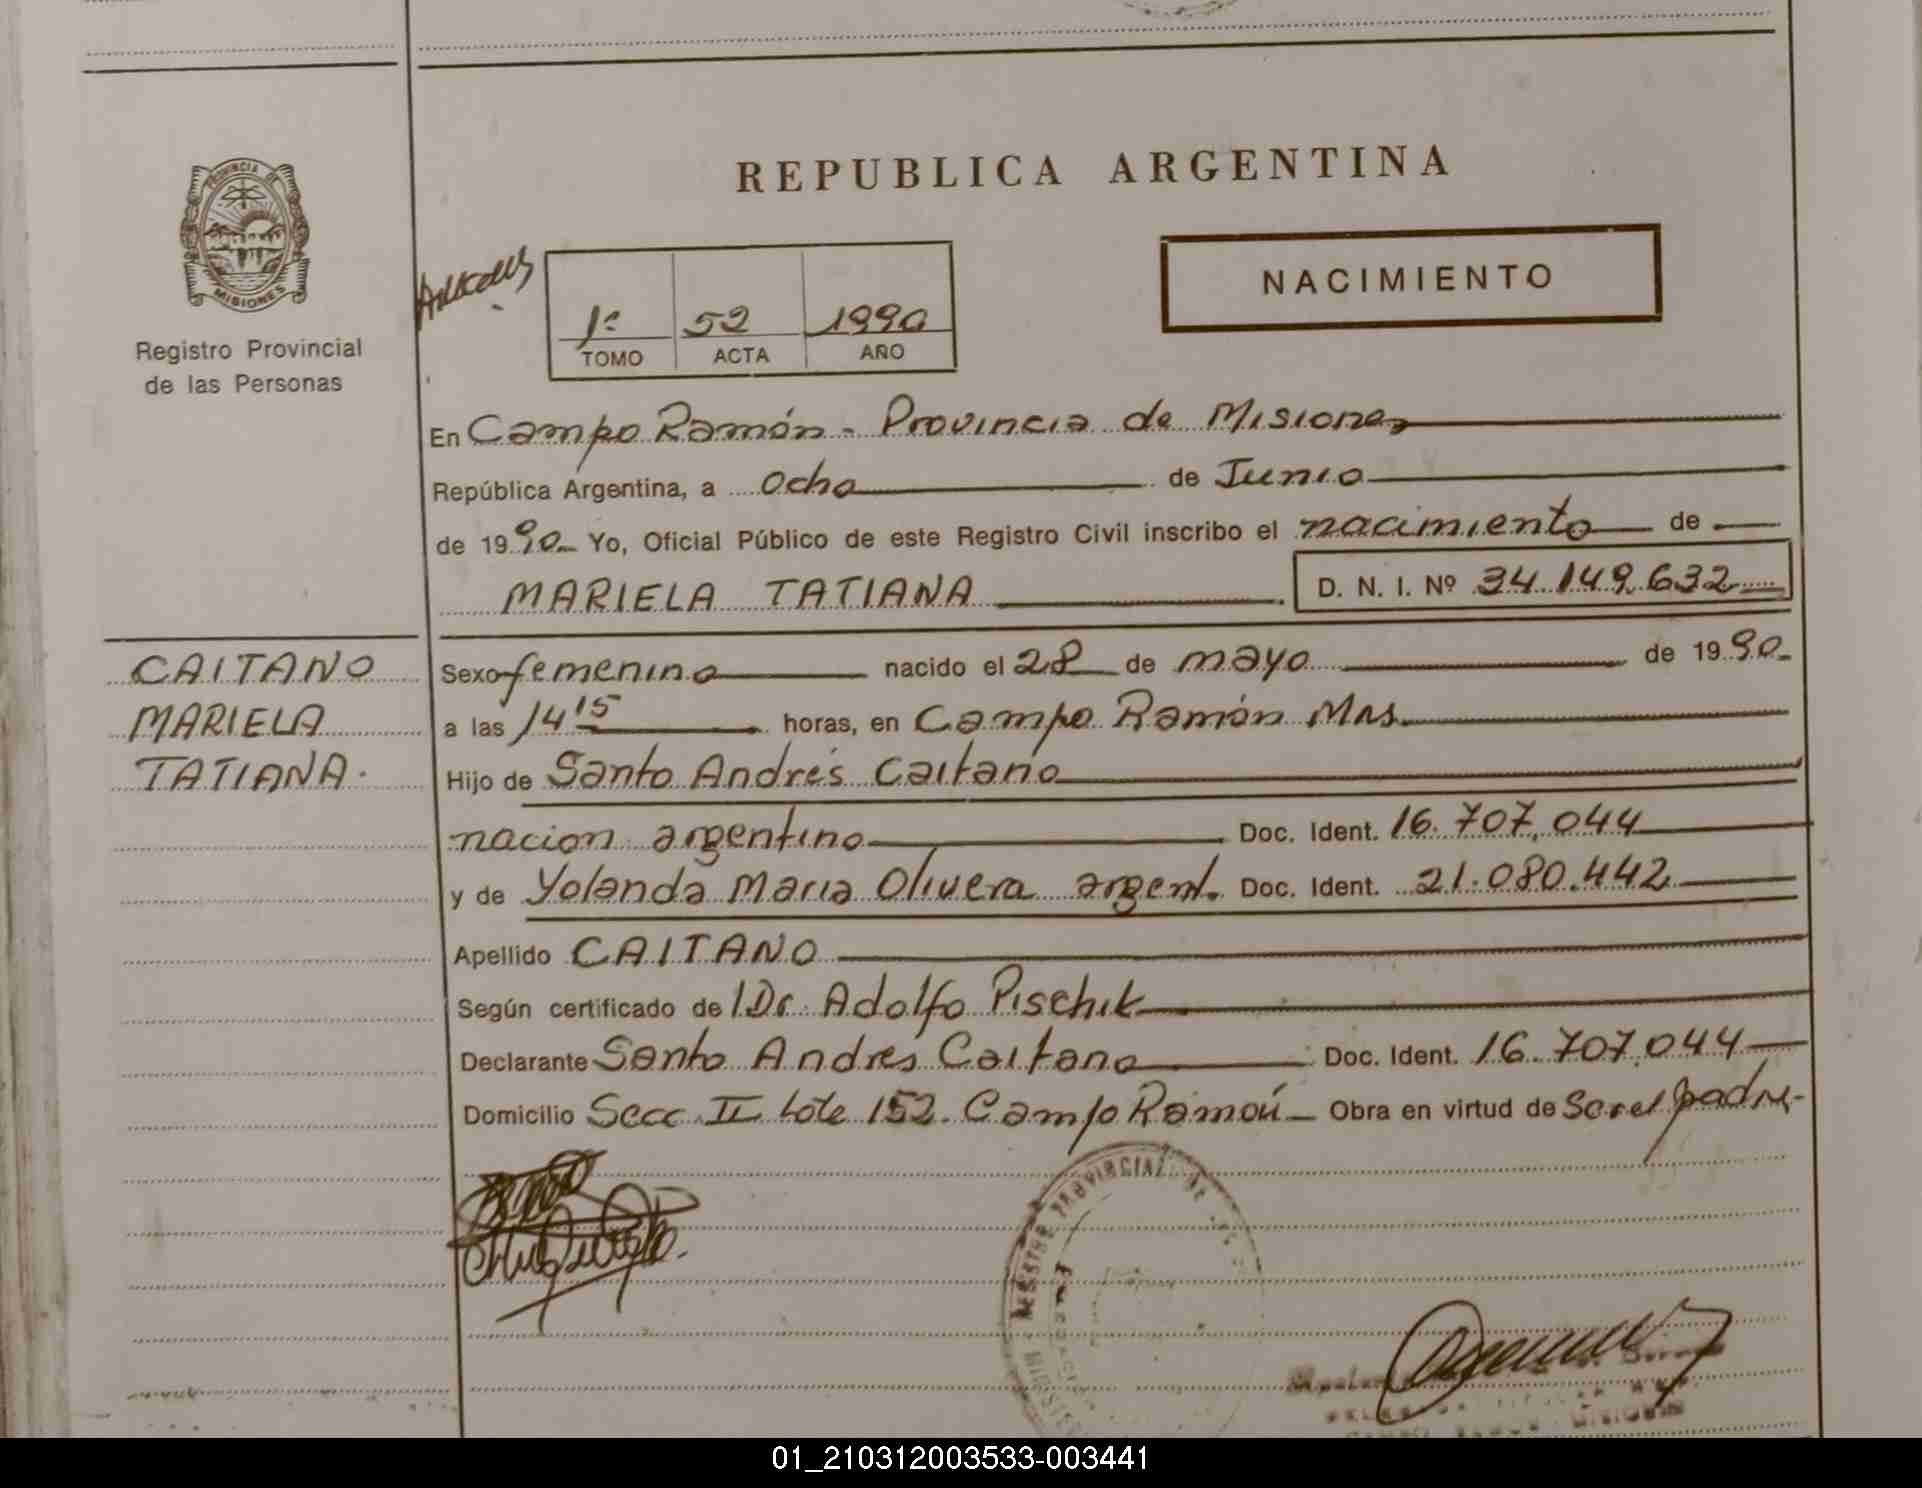 REPUBLICA ARGENTINA
PROVINCIA DE
MISIONES
Registro Provincial
de las Personas
NACIMIENTO
1º 52 1990
TOMO ACTA AÑO
En Campo Ramón - Provincia de Misiones
República Argentina, a Ocho de Junio
de 1990 Yo, Oficial Público de este Registro Civil inscribo el nacimiento de
MARIELA TATIANA D. N. I. Nº 34.149.632
CAITANO
MARIELA
TATIANA.
Sexo femenino nacido el 28 de mayo de 1990
a las 14 15 horas, en Campo Ramón Mns.
Hijo de Santo Andrés Caitano
nacion argentino Doc. Ident. 16.707.044
y de Yolanda Maria Olivera argent. Doc. Ident. 21.080.442
Apellido CAITANO
Según certificado de l Dr. Adolfo Pischik
Declarante Santo Andres Caitano Doc. Ident. 16.707.044
Domicilio Secc II Lote 152. Campo Ramón Obra en virtud de Ser el padre
PROVINCIAL DE
01_210312003533-003441